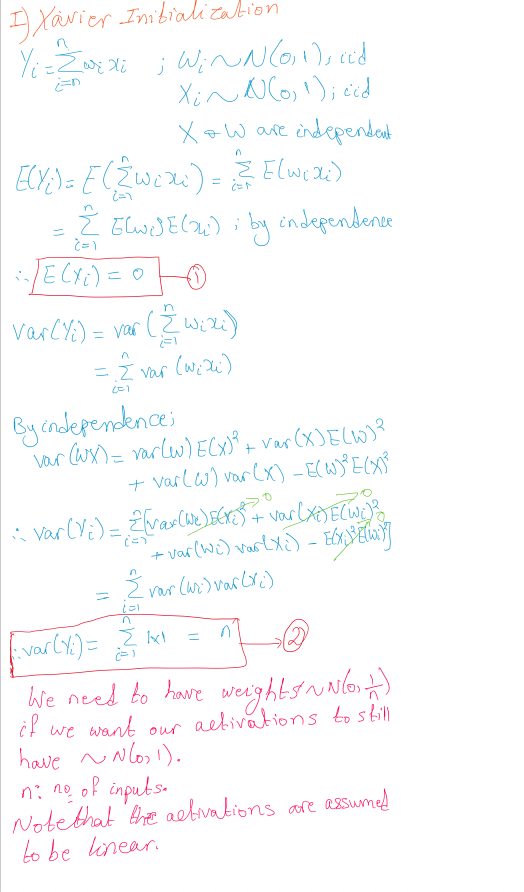 I) Xavier Initialization
Yi = Σ_{i=n}^{n} wi xi ; Wi ~ N(0,1), iid
Xi ~ N(0,1); iid
X & W are independent
E(Yi) = E(Σ_{i=1}^{n} wi xi) = Σ_{i=1}^{n} E(wi xi)
= Σ_{i=1}^{n} E(wi) E(xi) ; by independence
∴ E(Yi) = 0 → ①
var(Yi) = var(Σ_{i=1}^{n} wi xi)
= Σ_{i=1}^{n} var(wi xi)
By independence;
var(WX) = var(W) E(X)² + var(X) E(W)²
+ var(W) var(X) - E(W)² E(X)²
∴ var(Yi) = Σ_{i=1}^{n} [var(Wi) E(Xi)² → 0 + var(Xi) E(Wi)² → 0
+ var(Wi) var(Xi) - E(Xi)² E(Wi)² → 0]
= Σ_{i=1}^{n} var(Wi) var(Xi)
∴ var(Yi) = Σ_{i=1}^{n} 1x1 = n → ②
We need to have weights ~ N(0, 1/n)
if we want our activations to still
have ~ N(0,1).
n: no of inputs.
Note that the activations are assumed
to be linear.